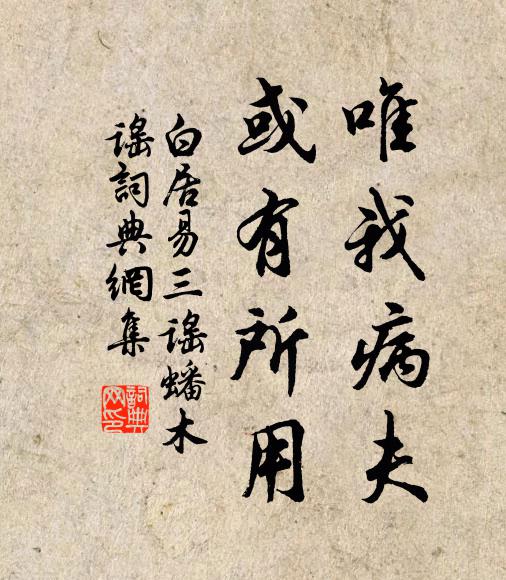 唯我病夫
或有所用
白居易三謡蟠木
謡詞典網集
詞典
网印